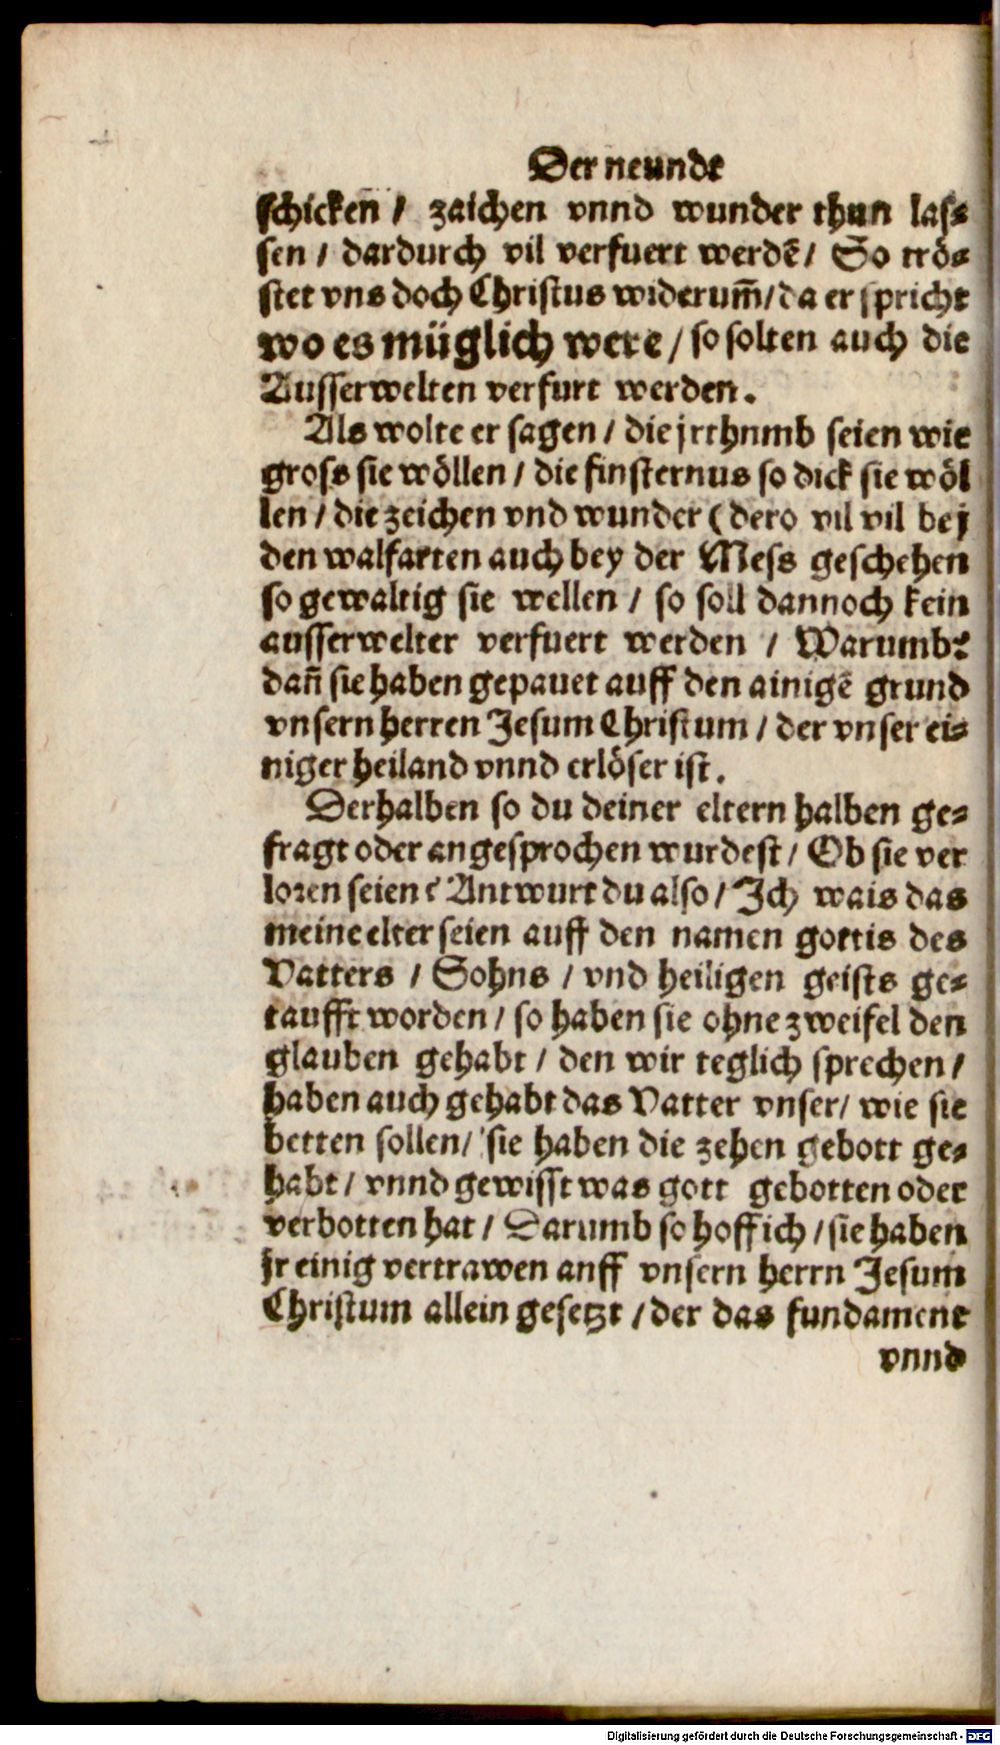 Der neundt
schicken / zaichen vnnd wunder thun las⸗
sen / dardurch vil verfuert werdē / So trö⸗
stet vns doch Christus widerum̄ / da er spricht
wo es müglich were / so solten auch die
Ausserwelten verfurt werden.
Als wolte er sagen / die jrthnmb seien wie
gross sie wöllen / die finsternus so dick sie wöl
len / die zeichen vnd wunder ( dero vil vil bej
den walfarten auch bey der Mess geschehen
so gewaltig sie wellen / so soll dannoch kein
ausserwelter verfuert werden / Warumb?
dan̄ sie haben gepauet auff den ainigē grund
vnsern herren Jesum Christum / der vnser ei⸗
niger heiland vnnd erlöser ist.
Derhalben so du deiner eltern halben ge⸗
fragt oder angesprochen wurdest / Ob sie ver
loren seien? Antwurt du also / Ich wais das
meine elter seien auff den namen gottis des
Vatters / Sohns / vnd heiligen geists ge⸗
taufft worden / so haben sie ohne zweifel den
glauben gehabt / den wir teglich sprechen /
haben auch gehabt das Vatter vnser / wie sie
betten sollen / sie haben die zehen gebott ge⸗
habt / vnnd gewisst was gott gebotten oder
verbotten hat / Darumb so hoff ich / sie haben
jr einig vertrawen anff vnsern herrn Jesum
Christum allein gesetzt / der das fundament
vnnd
Digitalisierung gefördert durch die Deutsche Forschungsgemeinschaft - DFG